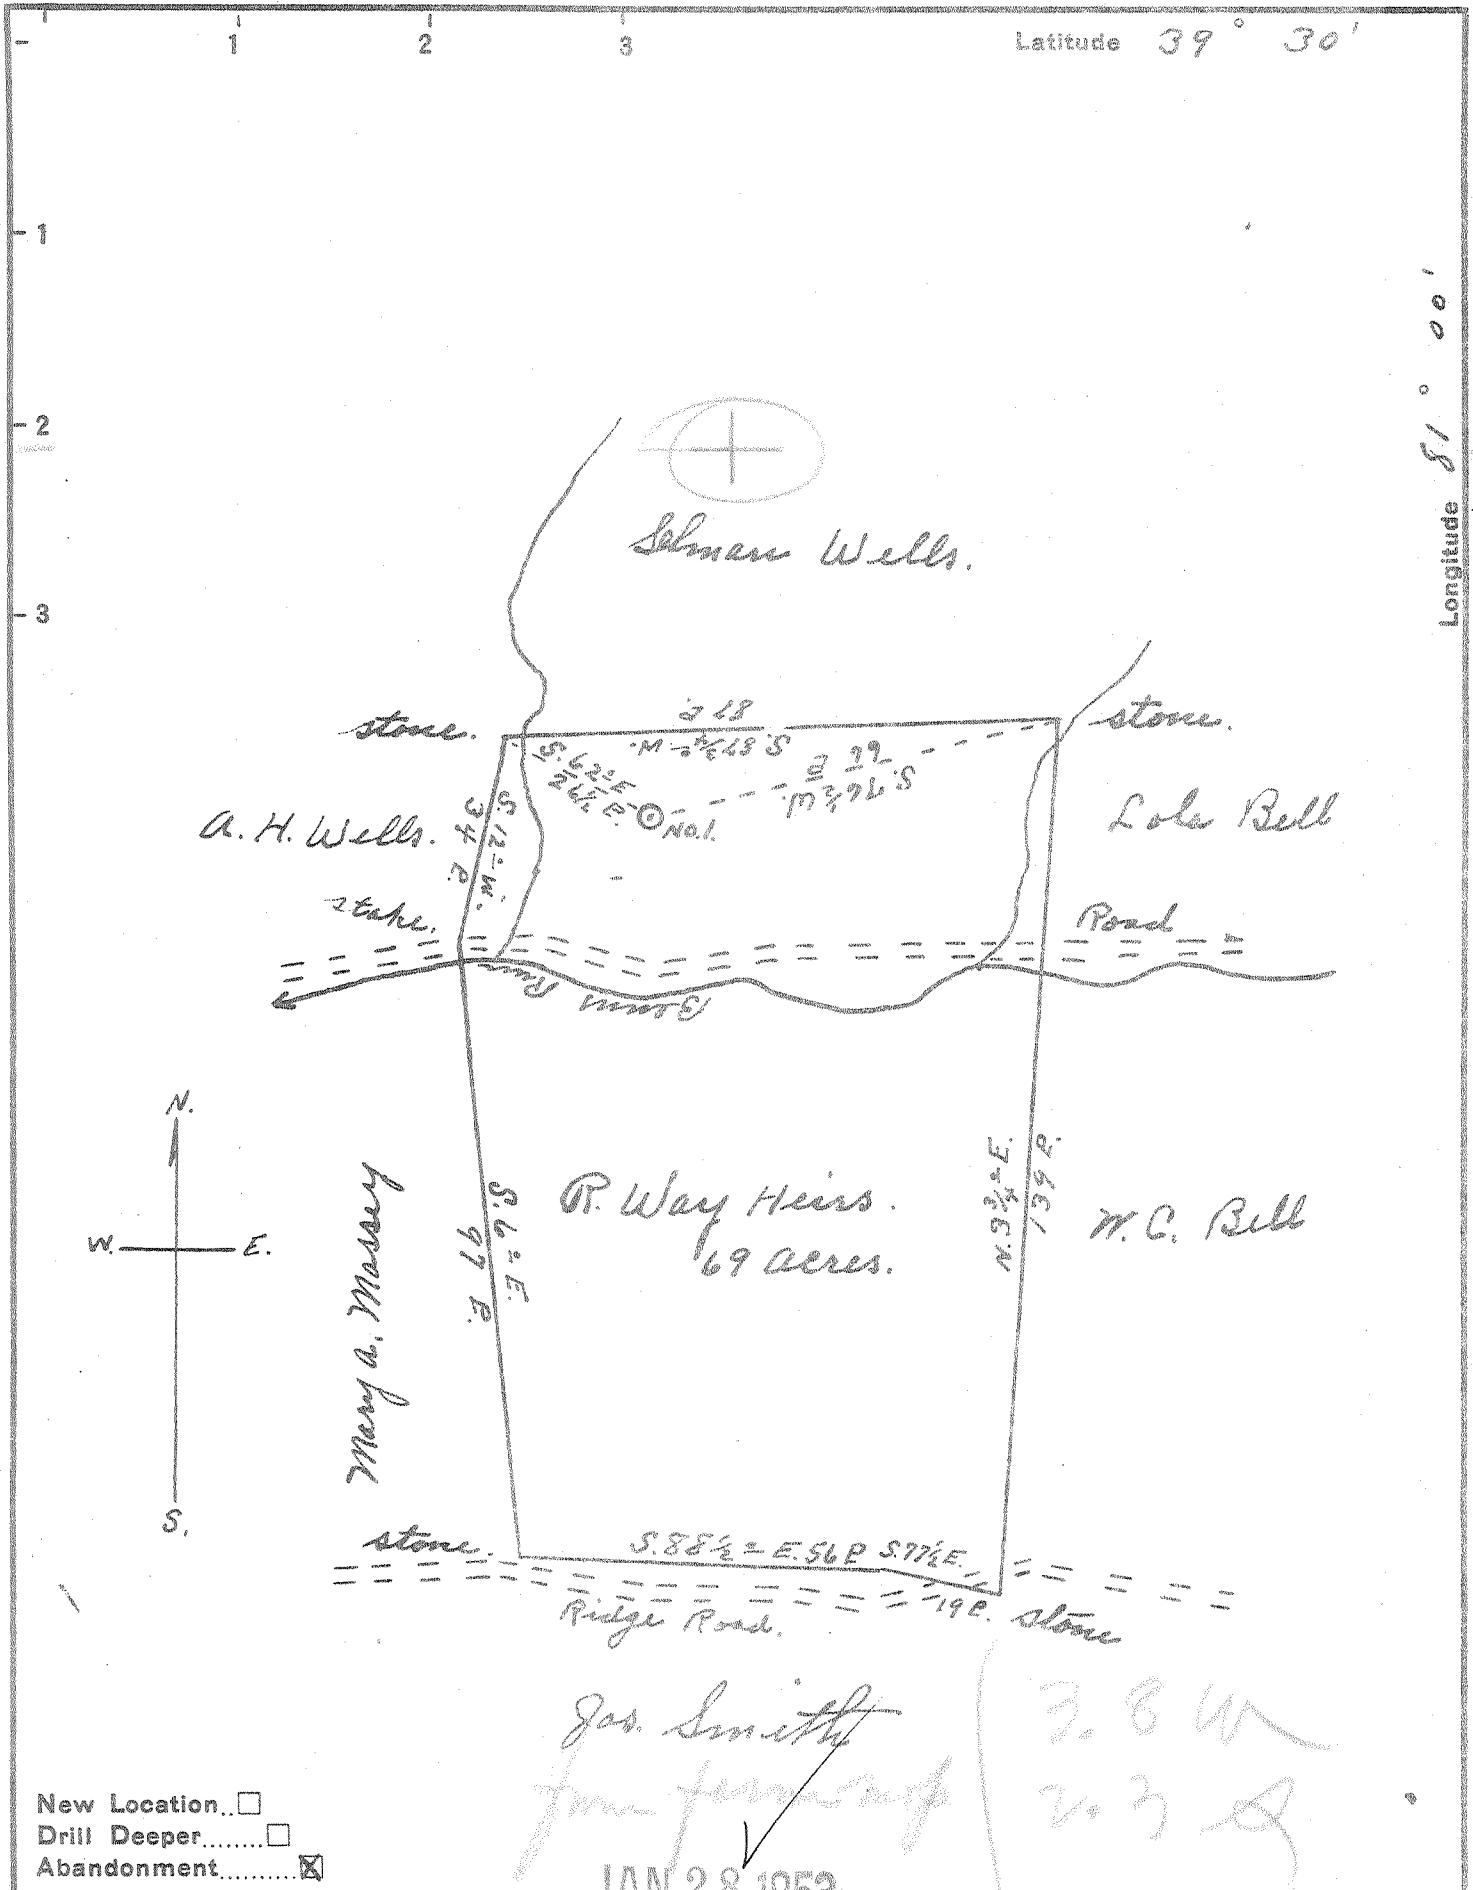 1 2 3 Latitude 39° 30'
1
2
3
Longitude 81° 00'
Selman Wells.
stone.
87 P.
S. 87 3/4° W.
stone.
S. 62° E
26 1/2 P.
66 P
S. 76 1/2 W.
No.1.
A. H. Wells.
S. 12° W.
34 P.
Lola Bell
stake.
Road
Run
N.
W. E.
S.
Mary A. Massey
S. 6° E.
97 P.
R. Way Heirs.
69 Acres.
N. 3 3/4° E.
139 P.
W. C. Bell
stone.
S. 88 1/2° E. 56 P S. 77 1/2 E.
19 P. stone
Ridge Road.
Jos. Smith
3.8 W
from farm map
New Location..☐
Drill Deeper........☐
Abandonment..........☒
JAN 28